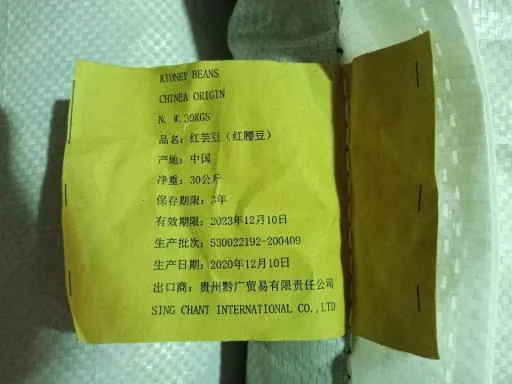 KIDNEY BEANS
CHINEA ORIGIN
N. W.30KGS
品名：红芸豆（红腰豆）
产地：中国
净重：30公斤
保存期限：3年
有效期限：2023年12月10日
生产批次：530022192-200409
生产日期：2020年12月10日
出口商：贵州黔广贸易有限责任公司
SING CHANT INTERNATIONAL CO.,LTD